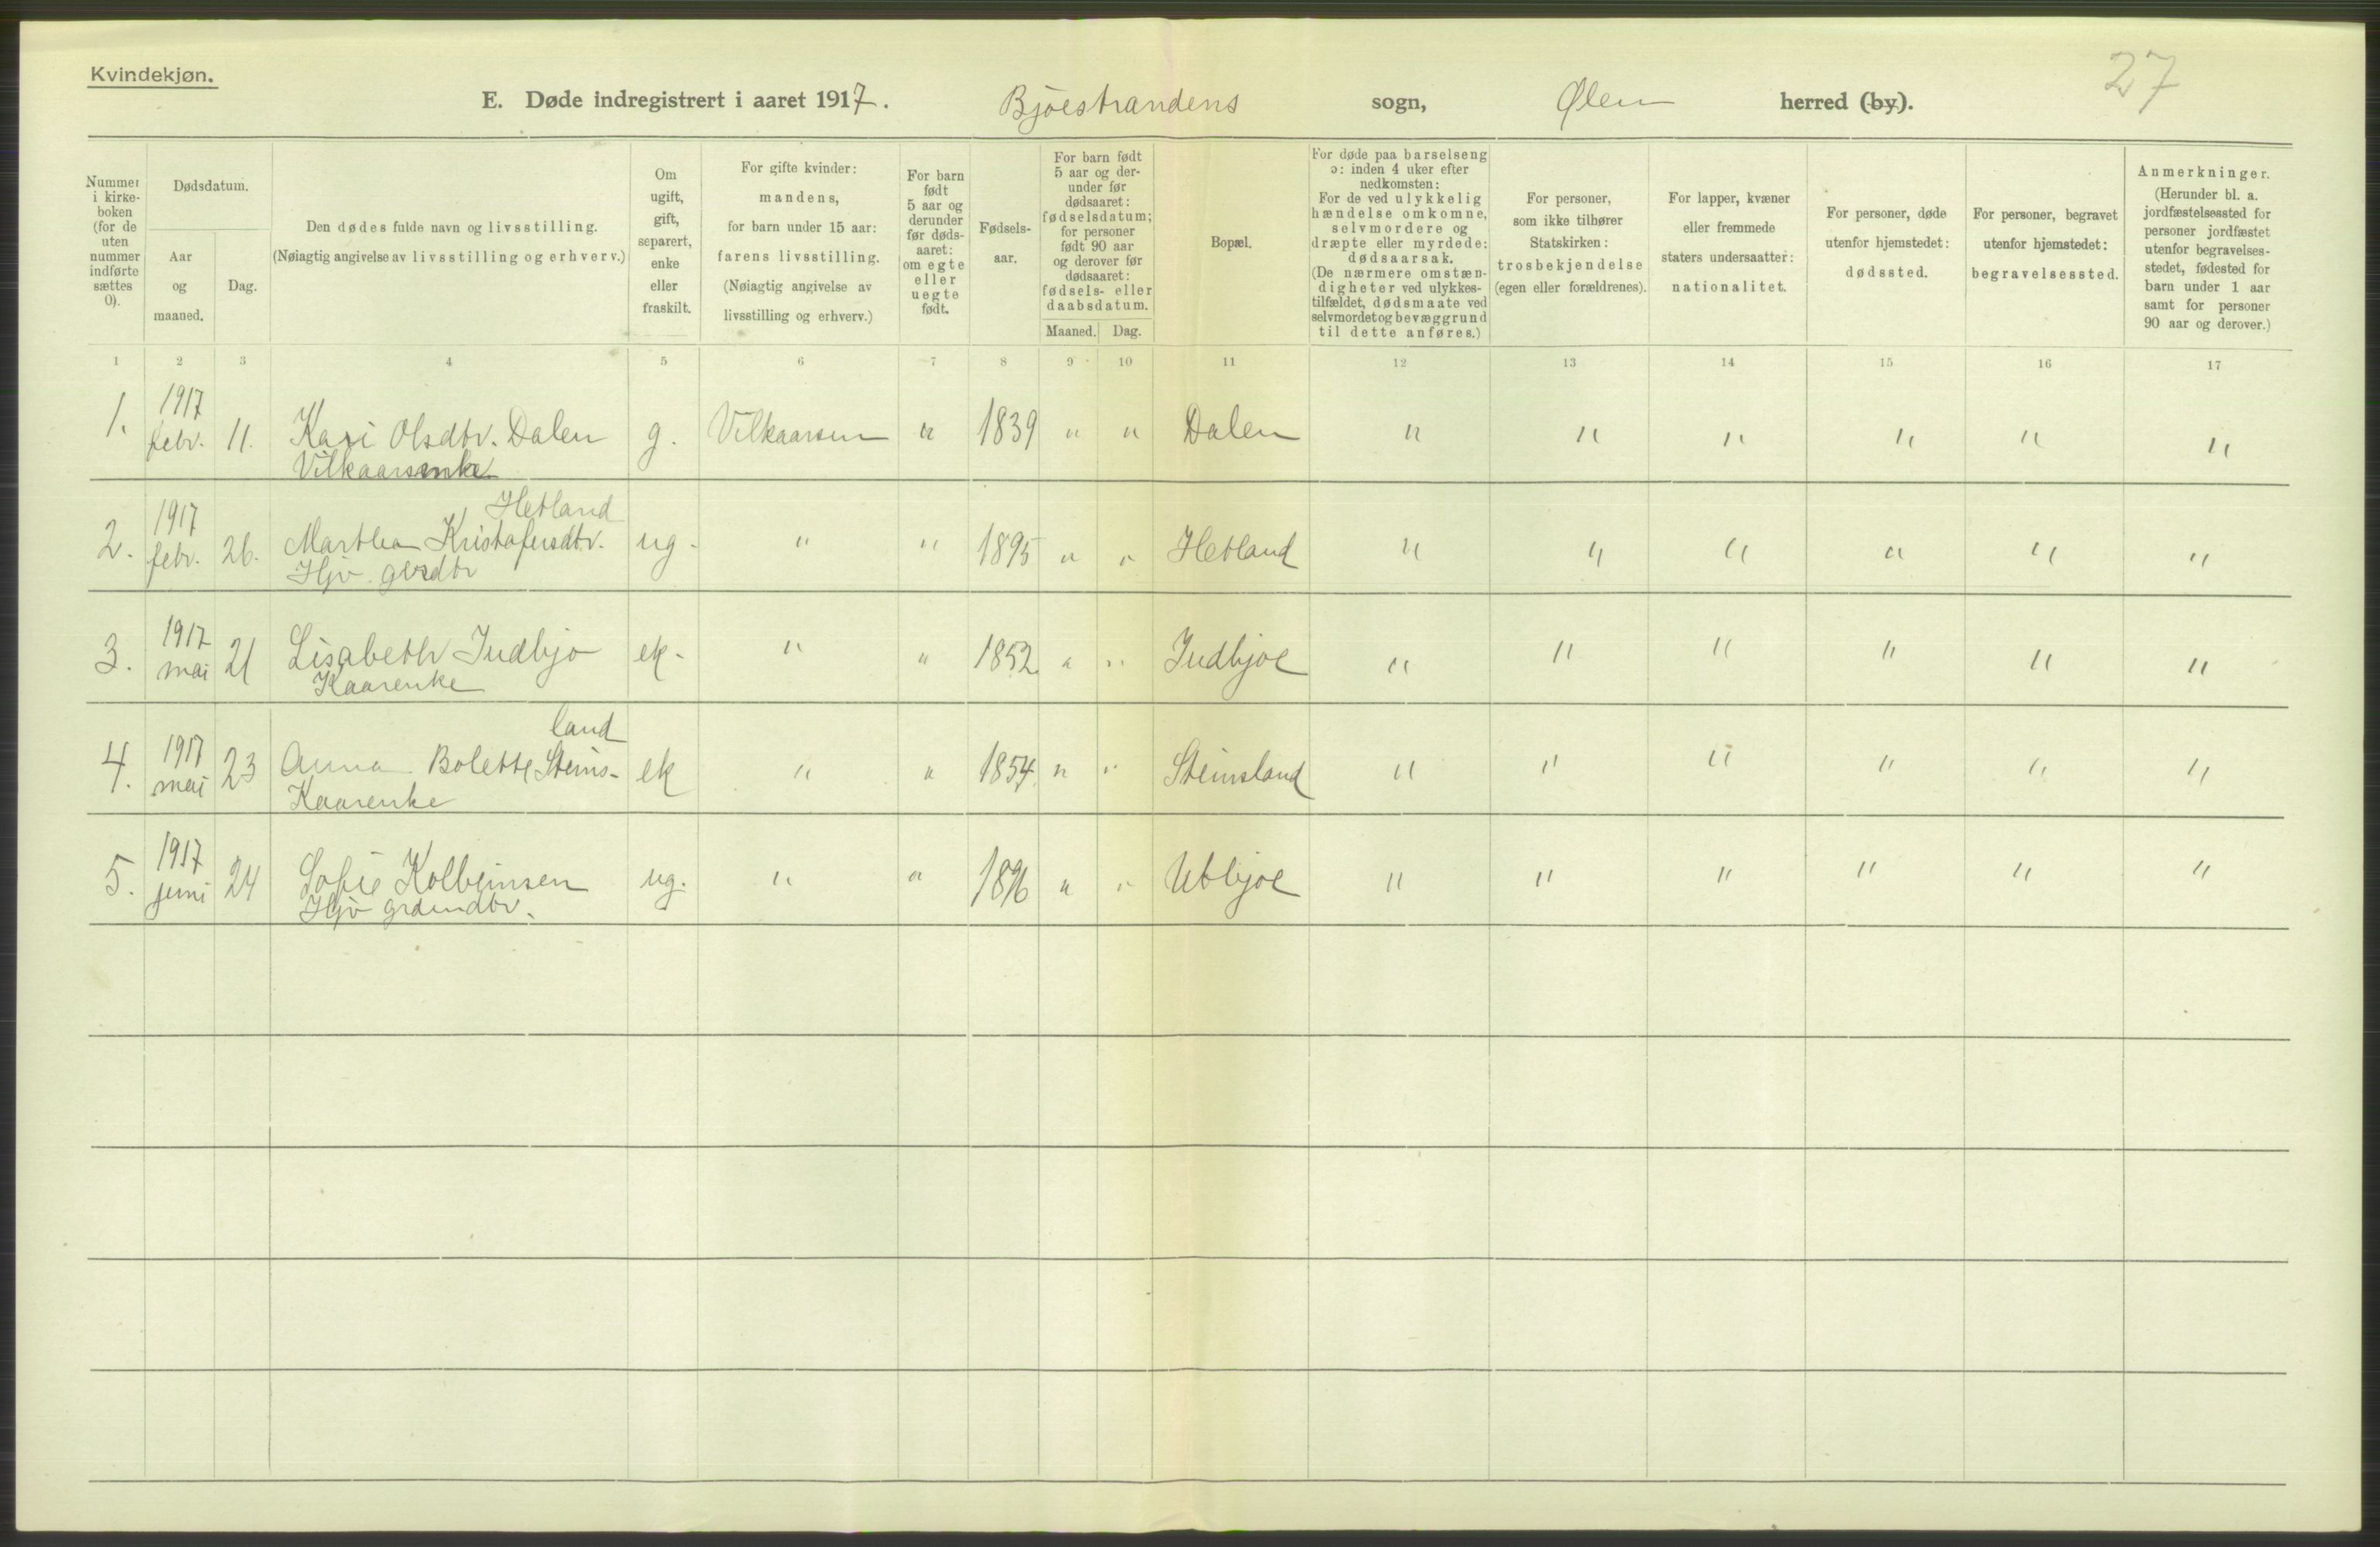 Kvindekjøn.
27
E. Døde indregistrert i aaret 1917. Bjoestrandens sogn, Ølen herred (by).
Nummer i kirkeboken (for de uten nummer indførte sættes 0).
Dødsdatum.
Aar og maaned.
Dag.
Den dødes fulde navn og livsstilling.
(Nøiagtig angivelse av livsstilling og erhverv.)
Om ugift, gift, separert, enke eller fraskilt.
For gifte kvinder: mandens, for barn under 15 aar: farens livsstilling. (Nøiagtig angivelse av livsstilling og erhverv.)
For barn født 5 aar og derunder før dødsaaret: om egte eller uegte født.
Fødselsaar.
For barn født 5 aar og derunder før dødsaaret: fødselsdatum; for personer født 90 aar og derover før dødsaaret: fødsels- eller daabsdatum.
Maaned. Dag.
Bopæl.
For døde paa barselseng ɔ: inden 4 uker efter nedkomsten: For de ved ulykkelig hændelse omkomne, selvmordere og dræpte eller myrdede: dødsaarsak. (De nærmere omstændigheter ved ulykkestilfældet, dødsmaate ved selvmordet og bevæggrund til dette anføres.)
For personer, som ikke tilhører Statskirken: trosbekjendelse (egen eller forældrenes).
For lapper, kvæner eller fremmede staters undersaatter: nationalitet.
For personer, døde utenfor hjemstedet: dødssted.
For personer, begravet utenfor hjemstedet: begravelsessted.
Anmerkninger. (Herunder bl. a. jordfæstelsessted for personer jordfæstet utenfor begravelsesstedet, fødested for barn under 1 aar samt for personer 90 aar og derover.)
1 2 3 4 5 6 7 8 9 10 11 12 13 14 15 16 17
1. 1917 febr. 11. Kari Olsdtr. Dalen g. Vilkaarsm " 1839 " " Dalen " " " " " "
Vilkaarsenke
Hetland
2. 1917 febr. 26. Marthea Kristofersdtr. ug. " " 1895 " " Hetland " " " " " "
Hjv. grdtr
3. 1917 mai 21 Lisabeth Indbjo ek. " " 1852 " " Indbjoe " " " " " "
Kaarenke
land
4. 1917 mai 23 Anna Bolette Steins- ek " " 1854 " " Steinsland " " " " " "
Kaarenke
5. 1917 juni 24 Sofie Kolbeinsen ug. " " 1896 " " Utbjoe " " " " " "
Hjv grdmdtr.